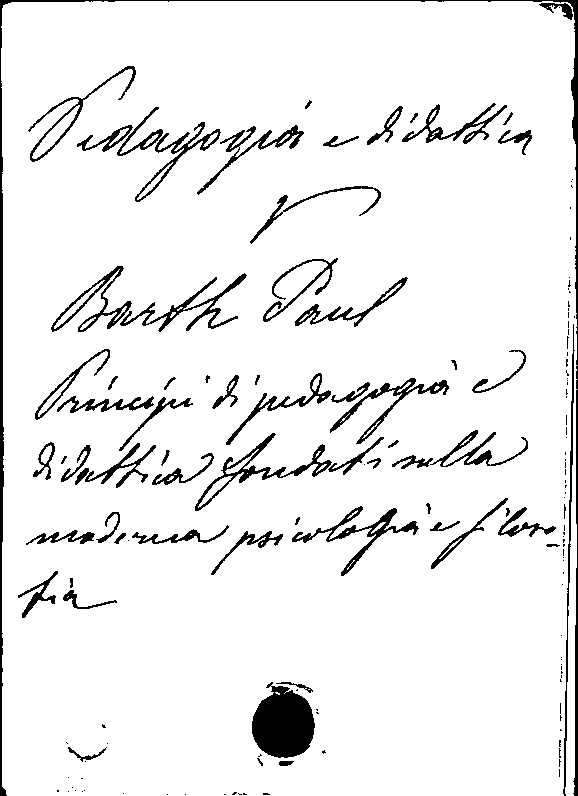 Pedagogia e didattica
V
Barth Paul
Principi di pedagogia e
didattica fondati sulla
moderna psicologia e filoso-
fia